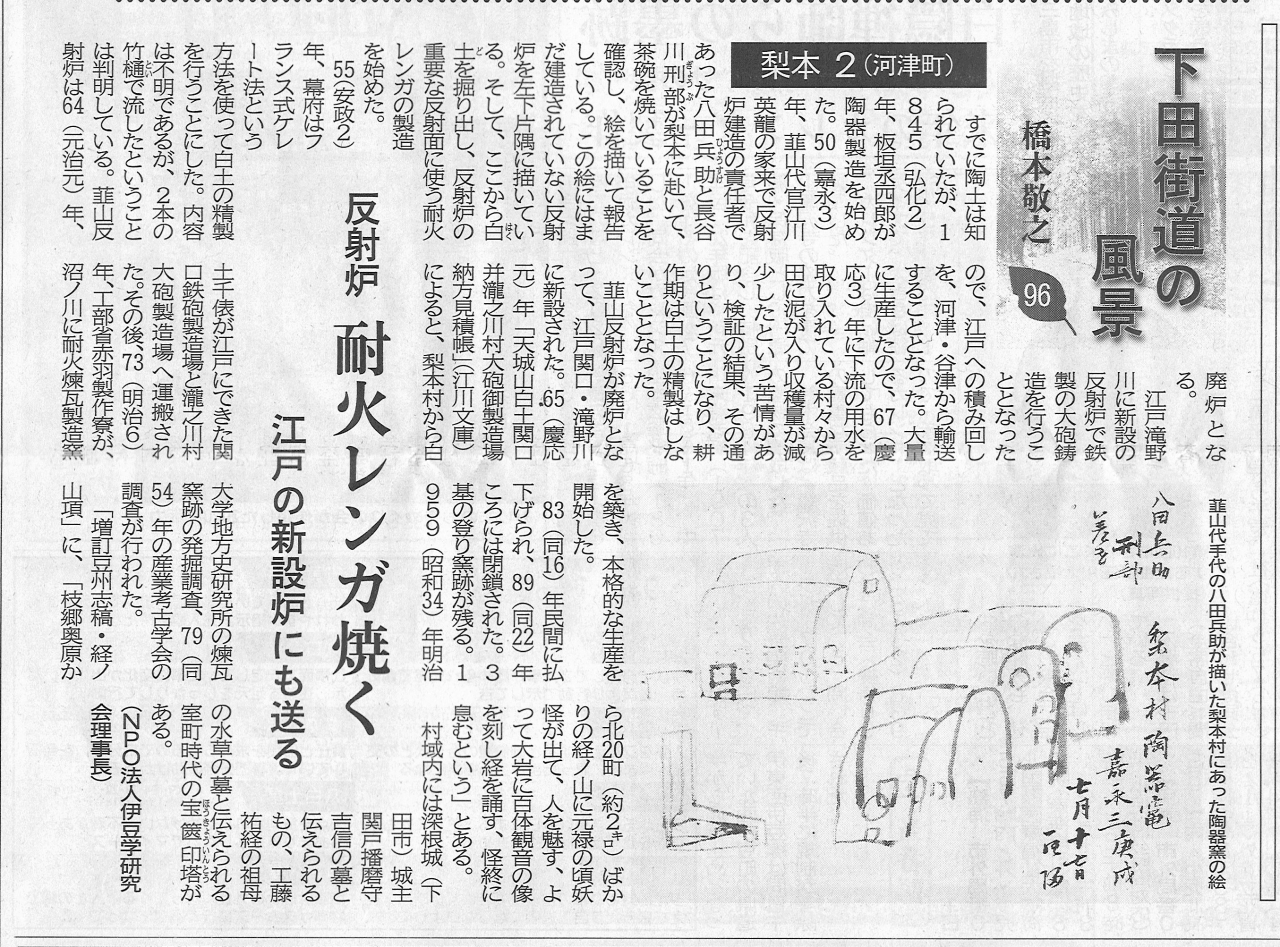 下田街道の
風景
橋本敬之
96
梨本 2(河津町)
すでに陶土は知
られていたが、1
845(弘化2)
年、板垣丞四郎が
陶器製造を始め
た。50(嘉永3)
年、韮山代官江川
英龍の家来で反射
炉建造の責任者で
あった八田兵助と長谷
川刑部が梨本に赴いて、
茶碗を焼いていることを
確認し、絵を描いて報告
している。この絵にはま
だ建造されていない反射
炉を左下片隅に描いてい
る。そして、ここから白
土を掘り出し、反射炉の
重要な反射面に使う耐火
レンガの製造
を始めた。
55(安政2)
年、幕府はフ
ランス式ケレ
ート法という
方法を使って白土の精製
を行うことにした。内容
は不明であるが、2本の
竹樋で流したということ
は判明している。韮山反
射炉は64(元治元)年、
廃炉とな
る。
江戸滝野
川に新設の
反射炉で鉄
製の大砲鋳
造を行うこ
ととなった
ので、江戸への積み回し
を、河津・谷津から輸送
することとなった。大量
に生産したので、67(慶
応3)年に下流の用水を
取り入れている村々から
田に泥が入り収穫量が減
少したという苦情があ
り、検証の結果、その通
りということになり、耕
作期は白土の精製はしな
いこととなった。
韮山反射炉が廃炉とな
って、江戸関口・滝野川
に新設された。65(慶応
元)年「天城山白土関口
并瀧之川村大砲御製造場
納方見積帳」(江川文庫)
によると、梨本村から白
土千俵が江戸にできた関
口鉄砲製造場と瀧之川村
大砲製造場へ運搬され
た。その後、73(明治6)
年、工部省赤羽製作寮が、
沼ノ川に耐火煉瓦製造窯
を築き、本格的な生産を
開始した。
83(同16)年民間に払
下げられ、89(同22)年
ころには閉鎖された。3
基の登り窯跡が残る。1
959(昭和34)年明治
大学地方史研究所の煉瓦
窯跡の発掘調査、79(同
54)年の産業考古学会の
調査が行われた。
「増訂豆州志稿・経ノ
山項」に、「枝郷奥原か
ら北20町(約2㌔)ばか
りの経ノ山に元禄の頃妖
怪が出て、人を魅す、よ
って大岩に百体観音の像
を刻し経を誦す、怪終に
息むという」とある。
村域内には深根城(下
田市)城主
関戸播磨守
吉信の墓と
伝えられる
もの、工藤
祐経の祖母
の水草の墓と伝えられる
室町時代の宝篋印塔が
ある。
(NPO法人伊豆学研究
会理事長)
反射炉 耐火レンガ焼く
江戸の新設炉にも送る
韮山代手代の八田兵助が描いた梨本村にあった陶器窯の絵
八田兵助
刑部
梨本村陶器竃
嘉永三庚戌
七月十七日